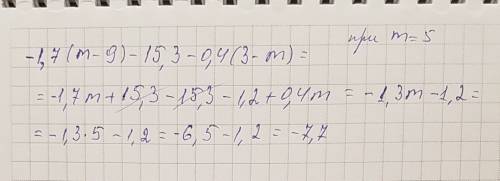 -1,7(m-9)-15,3-0,4(3-m)= при m=5
=-1,7m+15,3-15,3-1,2+0,4m = -1,3m-1,2=
=-1,3·5-1,2=-6,5-1,2=-7,7